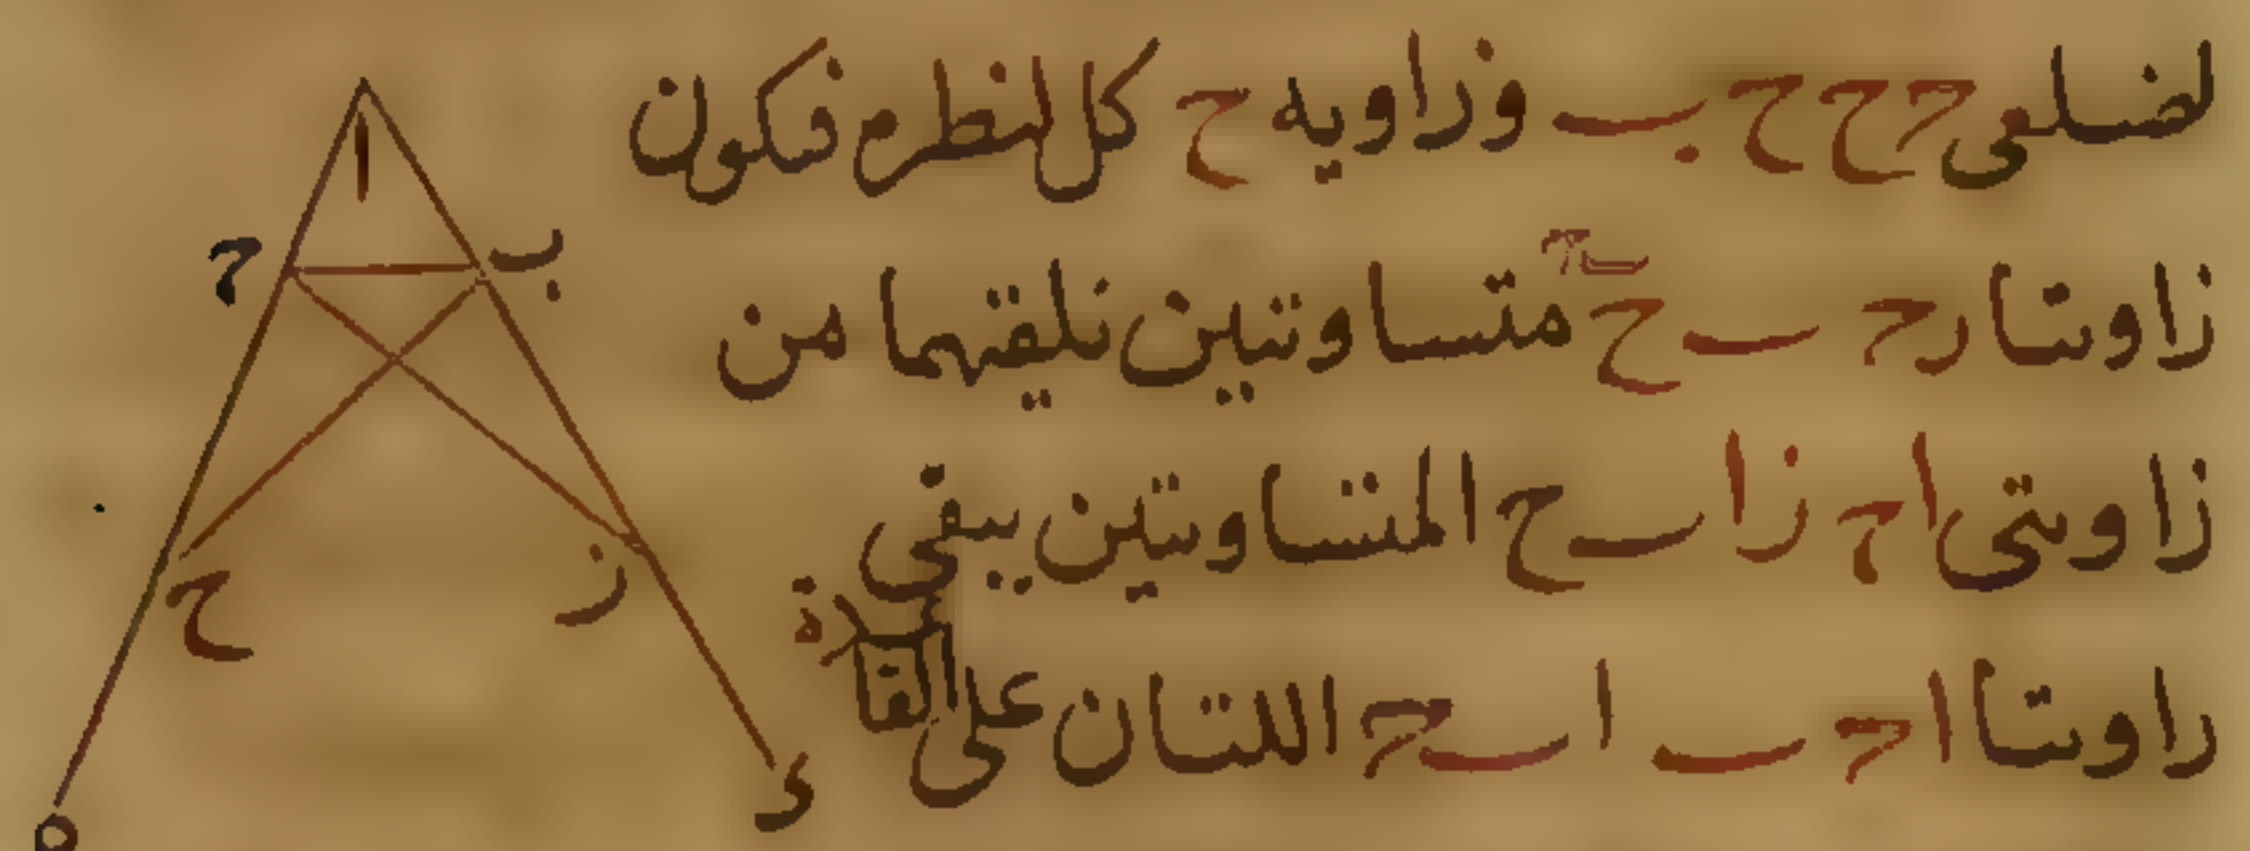 لضلعى حح ح ب وزاويه ح كل لنظره فيكون
زاويتا رح ب ب ح متساويتين نلقيهما من
زاويتى اح ز اب ح المتساويتين يبقى
زاويتا اح ب ا ب ح اللتان على القاعدة
ا
ب
ح
ح
ز
ه